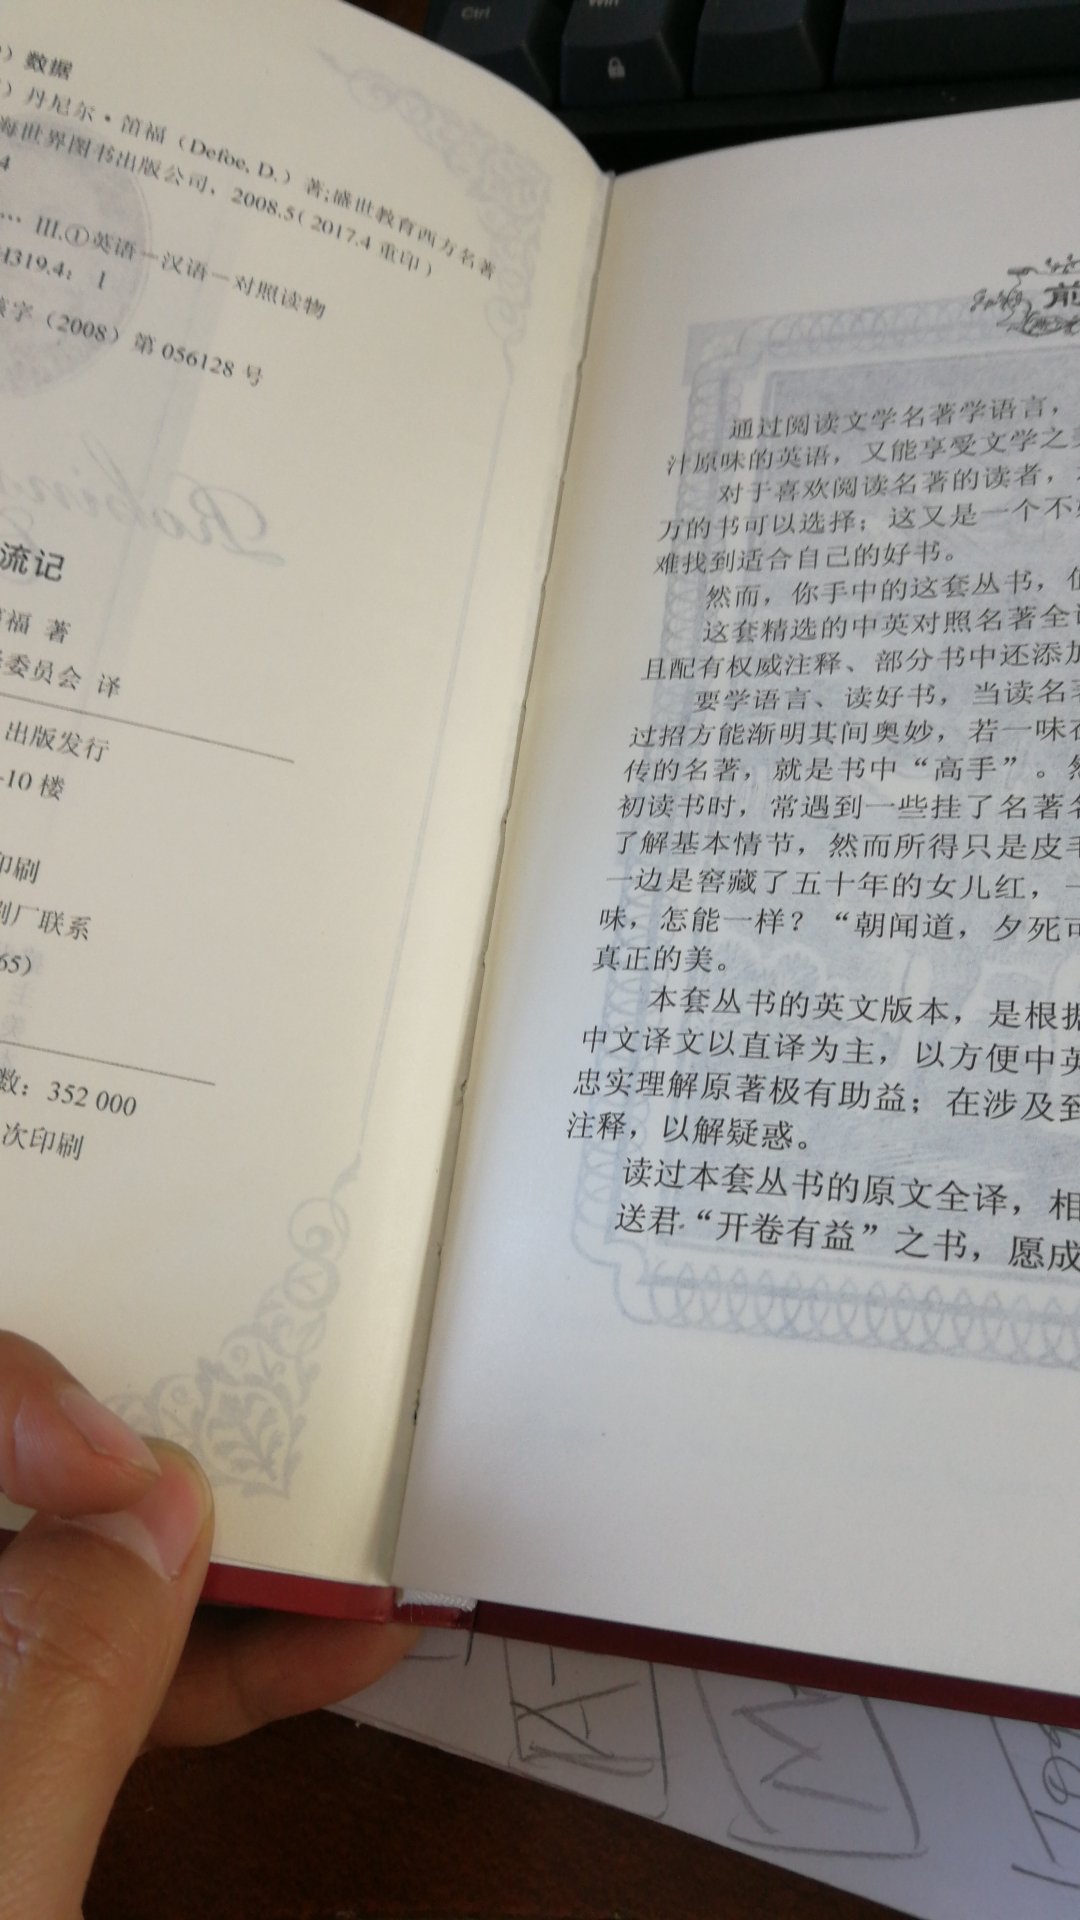 Ctrl
Win
数据
丹尼尔·笛福（Defoe, D.）著;盛世教育西方名著
海世界图书出版公司，2008.5（2017.4 重印）
4
… III.①英语－汉语－对照读物
H319.4：I
核字（2008）第 056128 号
流记
笛福 著
委员会 译
出版发行
-10 楼
印刷
刷厂联系
65）
数：352 000
次印刷
前
通过阅读文学名著学语言，
汁原味的英语，又能享受文学之
对于喜欢阅读名著的读者，
万的书可以选择；这又是一个不
难找到适合自己的好书。
然而，你手中的这套丛书，
这套精选的中英对照名著全
且配有权威注释、部分书中还添加
要学语言、读好书，当读名著
过招方能渐明其间奥妙，若一味在
传的名著，就是书中“高手”。然
初读书时，常遇到一些挂了名著名
了解基本情节，然而所得只是皮毛
一边是窖藏了五十年的女儿红，一
味，怎能一样？“朝闻道，夕死可
真正的美。
本套丛书的英文版本，是根据
中文译文以直译为主，以方便中英
忠实理解原著极有助益；在涉及到
注释，以解疑惑。
读过本套丛书的原文全译，相
送君“开卷有益”之书，愿成